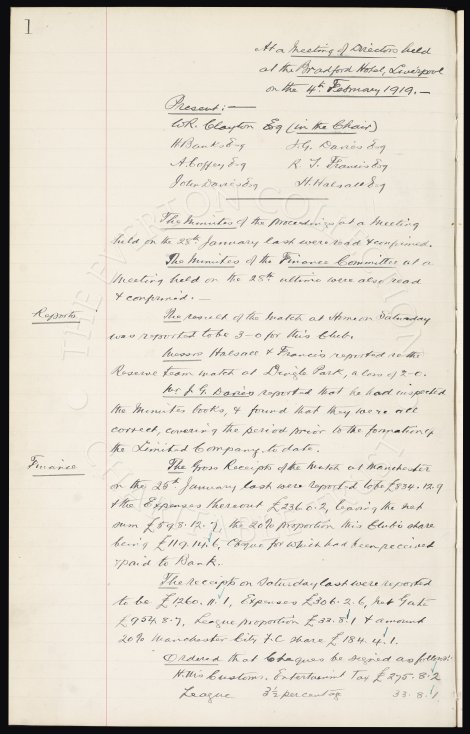 1
At a Meeting of Directors held
at the Bradford Hotel, Liverpool
on the 4th February 1919. —
Present: —
W.R. Clayton Esq (in the Chair)
H Banks Esq J.G. Davies Esq
A. Coffey Esq R. T. Francis Esq
John Davies Esq H. Halsall Esq
The Minutes of the proceedings at a Meeting
held on the 28th January last were read & confirmed.
The Minutes of the Finance Committee at a
Meeting held on the 28th ultimo were also read
& confirmed. —
Reports
The result of the Match at Home on Saturday
was reported to be 3-0 for this Club.
Messrs Halsall & Francis reported re the
Reserve team match at Dingle Park, a loss of 2-0.
Mr J. G. Davies reported that he had inspected
the Minute books, & found that they were all
correct, covering the period prior to the formation of
the Limited Company to date.
Finance
The Gross Receipts of the Match at Manchester
on the 25th January last were reported to be £834.12.9
& the Expenses thereout £236.0.2, leaving the net
sum £598.12.7, the 20% proportion this Club's share
being £119.14.6, Cheque for which had been received
& paid to Bank.
The receipts on Saturday last were reported
to be £1260.11.1, Expenses £306.2.6, net Gate
£954.8.7, League proportion £33.8.1 & amount
20% Manchester City F.C share £184.4.1.
Ordered that Cheques be signed as follows:
H.M's Customs. Entertainment Tax £275.8.2
League 3½ percentage 33.8.1
THE EVERTON COLLECTION